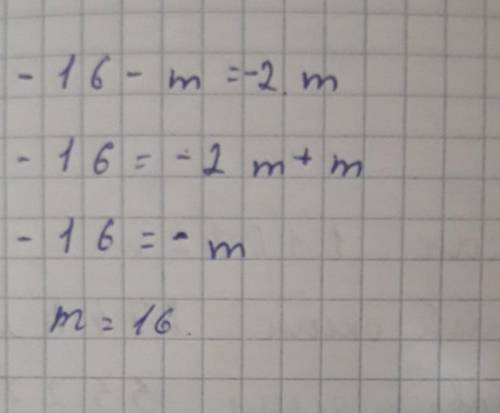 - 16 - m = -2 m
- 16 = - 2 m + m
- 16 = - m
m = 16.